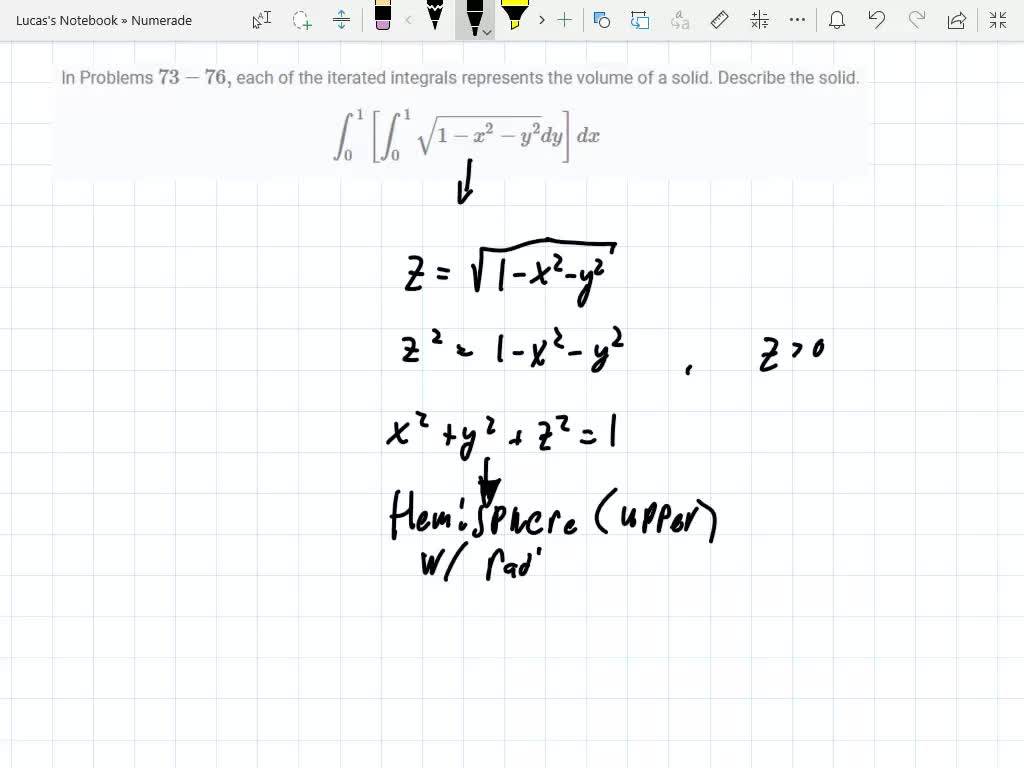 Lucas's Notebook » Numerade
In Problems 73 − 76, each of the iterated integrals represents the volume of a solid. Describe the solid.
∫₀¹ [∫₀¹ √(1 − x² − y²) dy] dx
z = √(1-x²-y²)
z² = 1-x²-y² , z>0
x²+y²+z²=1
Hemisphere (upper)
w/ rad